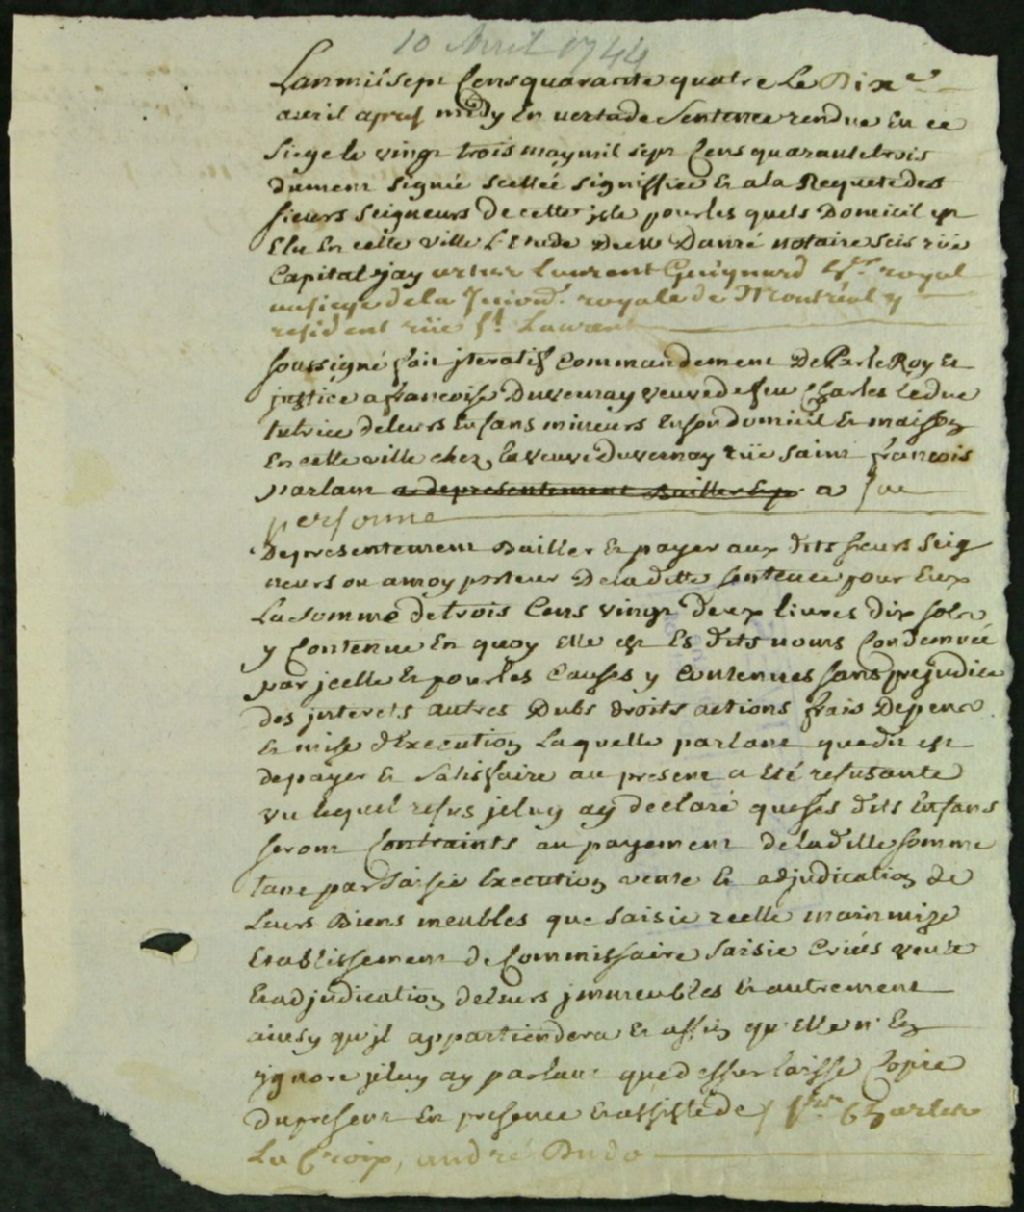 10 Avril 1744
Lan mil sept Cens quarante quatre Le Dixe
avril apres midy En vertu de Sentence rendue En ce
Siege le vingt trois may mil sept Cens quarante trois
dument signée scellée signiffiée & a la Requete des
sieurs Seigneurs de cette isle pour les quels Domicil est
Elu En cette ville L'Etude de Me Danré notaire scis rüe
Capital jay Laurent Guignard royal
au siege de la royale de Montréal y
resident rüe St Laurent
soussigné fait jteratif Commandement De Par le Roy &
justice a francoise Duvernay veuve de feu Charles Leduc
tutrice de leurs Enfans mineurs En son domicil & maison
En cette ville chez la veuve Duvernay rüe Saint francois
parlant a depresentement Bailler & p a sa
personne
De presentement Bailler & payer aux dits sieurs Seig
neurs ou a moy porteur De la ditte sentence pour Eux
La somme de trois Cens vingt deux livres dix sols
y Contenue En quoy Elle est Es dits noms Condemnée
par jcelle & pour les Causes y Contenues sans prejudice
des jnterets autres Dubs droits actions frais Depens
& mise d'Execution Laquelle parlant que dit est
de payer & Satisfaire au present a Eté refusante
vu lequel refus je luy ay declaré que ses dits Enfans
seront Contraints au payement de la ditte somme
tant par Saisie Execution vente & adjudication de
Leurs Biens meubles que Saisie reelle main mize
Etablissement de Commissaire Saisie Criées vente
& adjudication de leurs jmmeubles & autrement
ainsy qu'jl appartiendera & affin qu'Elle n'En
jgnore je luy ay parlant que dessus laissé Copie
du present En presence & assisté de Charles
La Croix, andré Bodo